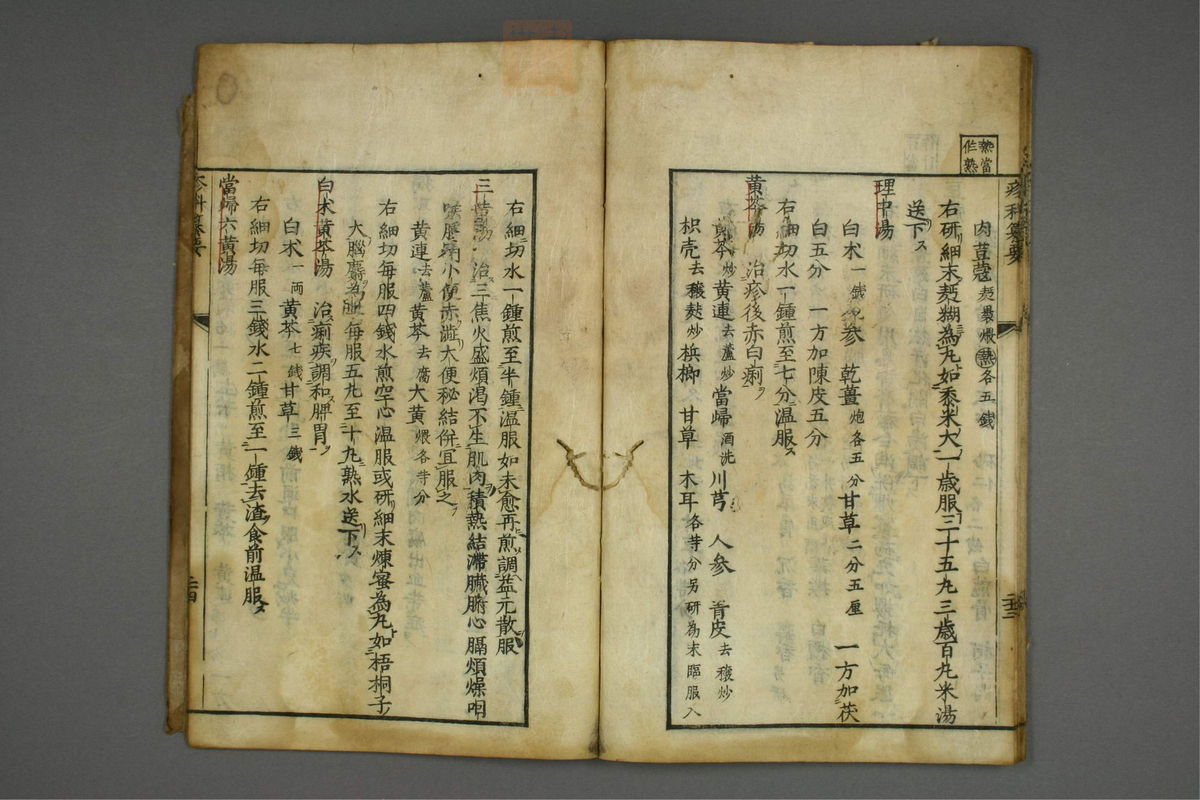 熟當
作熟
疹科纂要
肉荳蔻麪裹煨熟各五錢
右研細末麪糊為丸如黍米大一歲服三十五丸三歲百丸米湯
送下
理中湯
白朮一錢 人參 乾薑炮各五分 甘草二分五厘 一方加茯
白五分 一方加陳皮五分
右細切水一鍾煎至七分溫服
黃芩湯 治疹後赤白痢
黃芩炒 黃連去蘆炒 當歸酒洗 川芎 人參 青皮去穰炒
枳壳去穰麩炒 檳榔 甘草 木耳各等分另研為末臨服入
二十三
右細切水一鍾煎至半鍾溫服如未愈再煎調益元散服
三黃湯 治三焦火盛煩渴不生肌肉積熱結滯臟腑心膈煩燥咽
喉腫痛小便赤澁大便秘結併宜服之
黃連去蘆 黃芩去腐 大黃煨各等分
右細切每服四錢水煎空心溫服或研細末煉蜜為丸如梧桐子
大每服五丸至十丸熟水送下
白朮黃芩湯 治痢疾調和脾胃
白朮一兩 黃芩七錢 甘草三錢
右細切每服三錢水二鍾煎至一鍾去渣食前溫服
當歸六黃湯
疹科纂要
二十四